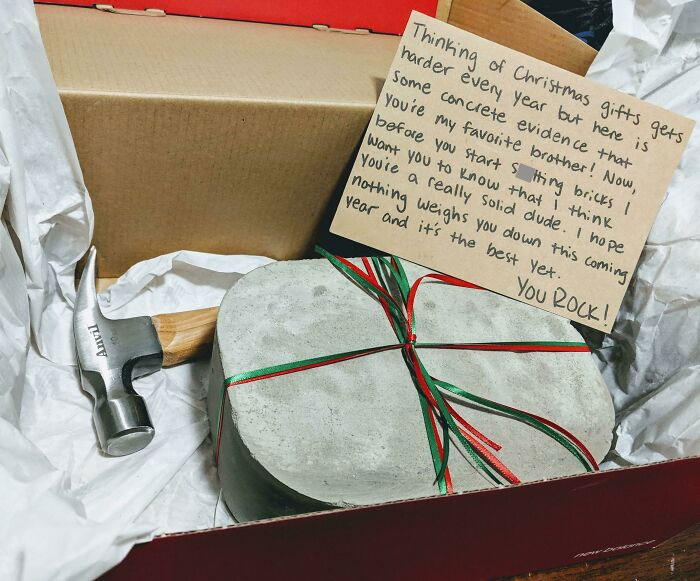 Thinking of Christmas gifts gets
harder every year but here is
some concrete evidence that
you're my favorite brother! Now,
before you start S tting bricks I
want you to know that I think
you're a really solid dude. I hope
nothing weighs you down this coming
year and it's the best yet.
You Rock!
Anvil
new balance